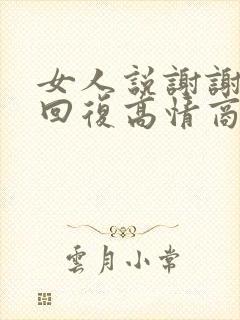 女人説謝謝
回復高情商
雲月小常